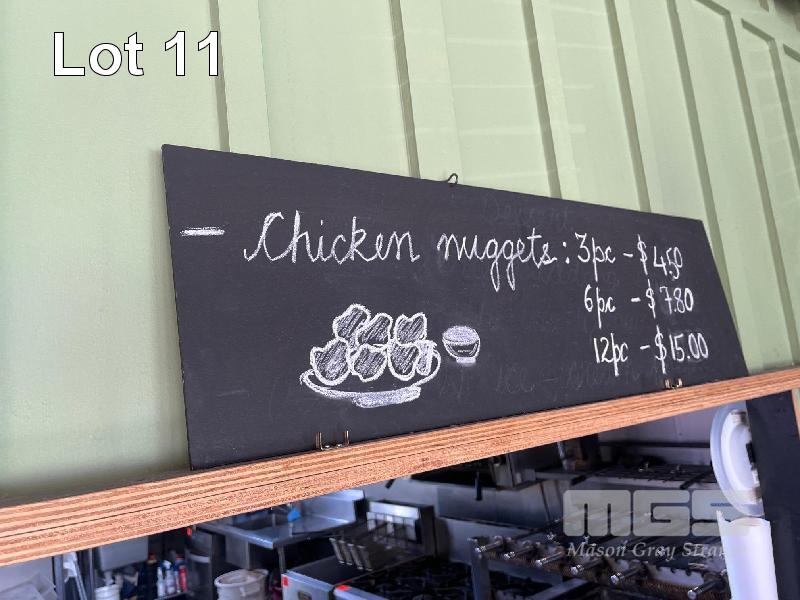 Lot 11
– Chicken nuggets: 3pc – $4.50
6pc – $7.80
12pc – $15.00
MGS
Mason Gray Stran